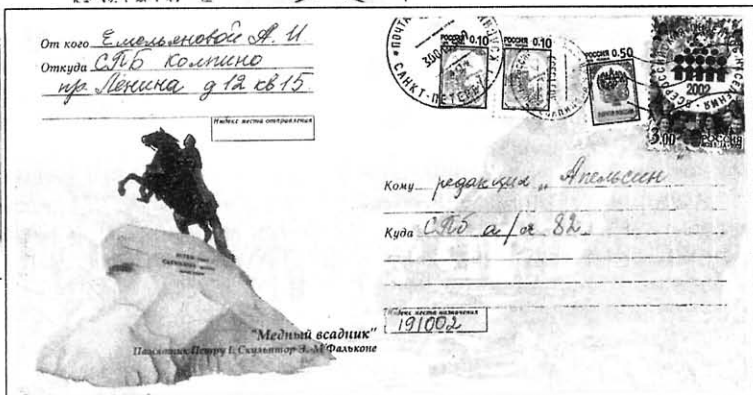 От кого Емельяновой А. И
Откуда СПб Колпино
пр. Ленина д 12 кв 15
Индекс места отправления
РОССИЯ 0.10
РОССИЯ 0.10
РОССИЯ 0.50
2002
3.00 РОССИЯ
САНКТ-ПЕТЕРБУРГ
Кому редакция „Апельсин
Куда СПб а/я 82
Индекс места назначения
191002
"Медный всадник"
Памятник Петру I. Скульптор Э.-М Фальконе